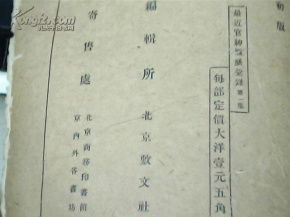 初版
最近官紳履歷彙錄 第一集
每部定價大洋壹元五角
編輯所 北京敷文社
寄售處 北京商務印書館
京內外各書坊